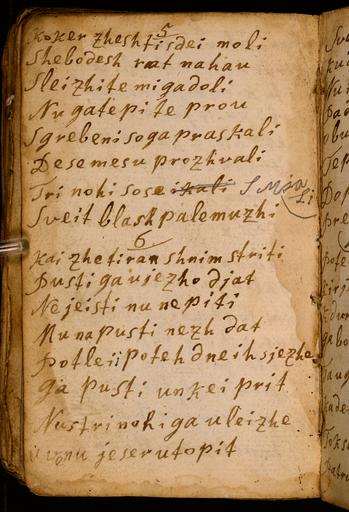 5
Koker zheshtisdei moli
Shebodesh rat nahau
Sleizhite migadoli
Nu gatepite prou
Sgrebeni soga praskali
Desemesu prozhvali
Tri nohi so se ikali SMja
Li
Sveit blask palemuzhi
6
Kai zhetiran shnim striti
Pusti ga ujezho djat
Nejeisti nu nepiti
Nu na pusti nezh dat
Potleii poteh dneih sjezhe
ga pusti unkei prit
Nastrinohi ga uleizhe
jeser utopit